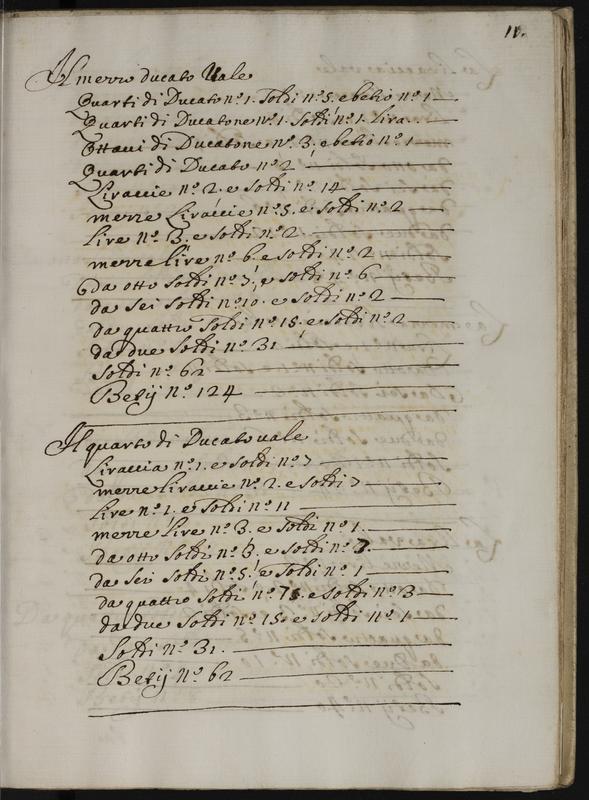 11.
Il mezzo ducato Vale
Quarti di Ducato n.º 1. Soldi n.º 5. e betio n.º 1
Quarti di Ducatone n.º 1. Soldi n.º 1. Lira
Ottavi di Ducatone n.º 3. e betio n.º 1
Quarti di Ducato n.º 2
Liraccie n.º 2. e Soldi n.º 14
mezze Liraccie n.º 5. e Soldi n.º 2
Lire n.º 3. e Soldi n.º 2
mezze lire n.º 6. e Soldi n.º 2
da otto Soldi n.º 7, e Soldi n.º 6
da sei Soldi n.º 10. e Soldi n.º 2
da quattro Soldi n.º 15, e Soldi n.º 2
da due Soldi n.º 31
Soldi n.º 62
Bezij n.º 124
Il quarto di Ducato vale
Liraccia n.º 1. e Soldi n.º 7
mezze Liraccie n.º 2. e Soldi 7
Lire n.º 1. e Soldi n.º 11
mezze Lire n.º 3. e Soldi n.º 1
da otto Soldi n.º 3. e Soldi n.º 7.
da sei Soldi n.º 5. e Soldi n.º 1
da quattro Soldi n.º 7. e Soldi n.º 3
da due Soldi n.º 15. e Soldi n.º 1
Soldi n.º 31.
Bezij n.º 62